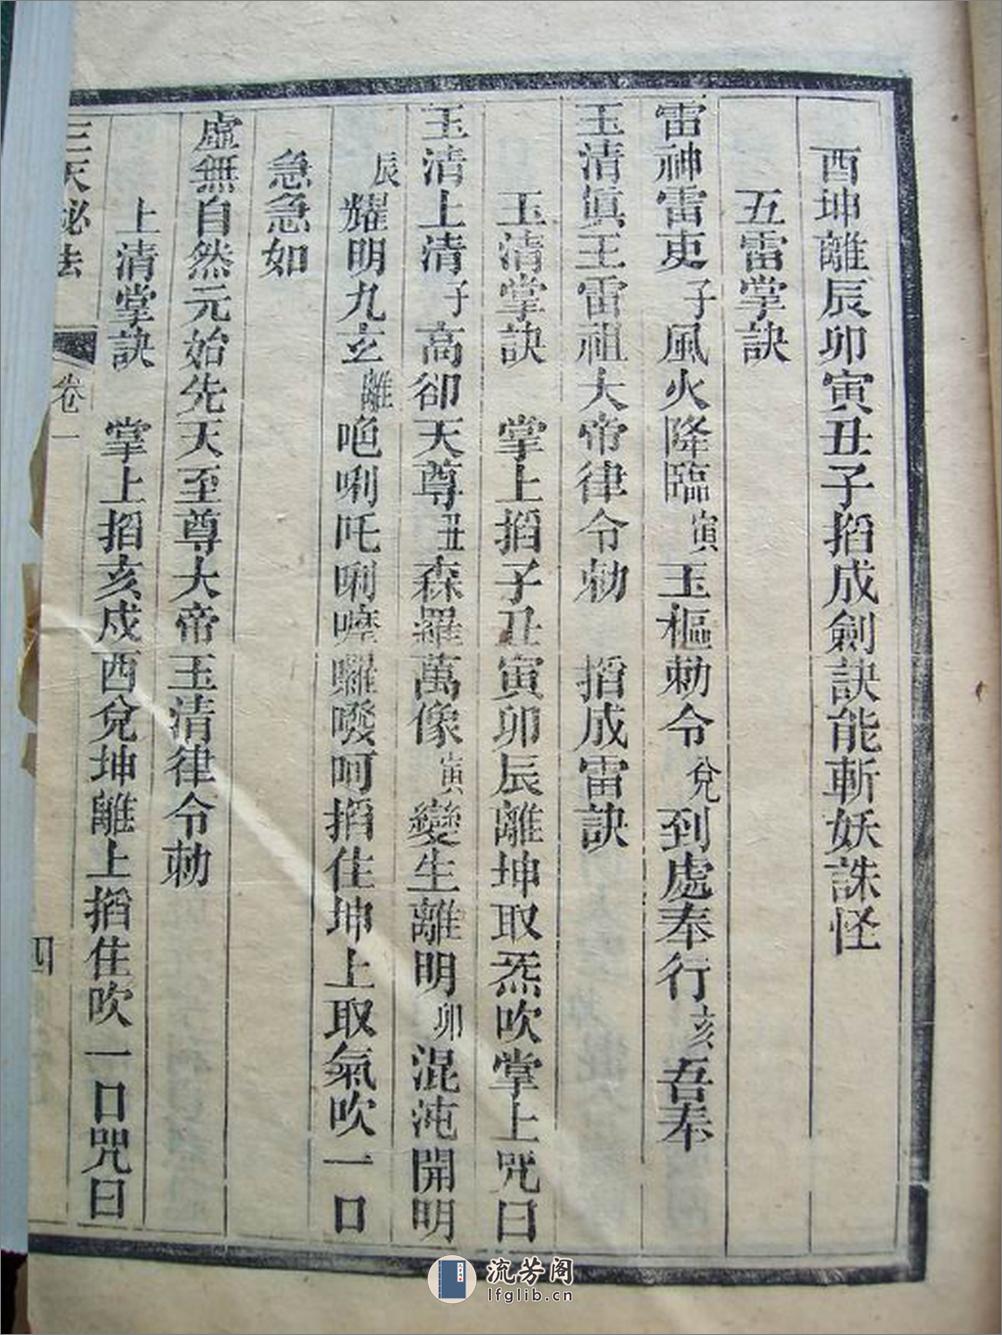 酉坤離辰卯寅丑子掐成劍訣能斬妖誅怪
五雷掌訣
雷神雷吏子風火降臨寅玉樞勅令兌到處奉行亥吾奉
玉清眞王雷祖大帝律令勅　掐成雷訣
玉清掌訣　掌上掐子丑寅卯辰離坤取炁吹掌上咒曰
玉清上清子高卻天尊丑森羅萬像寅變生離明卯混沌開明
辰耀明九玄離唵唎吒唎囉呵掐住坤上取氣吹一口
急急如
虛無自然元始先天至尊大帝玉清律令勅
上清掌訣　掌上掐亥戍酉兌坤離上掐住吹一口咒曰
三天秘法　卷一　四
流芳阁
lfglib.cn